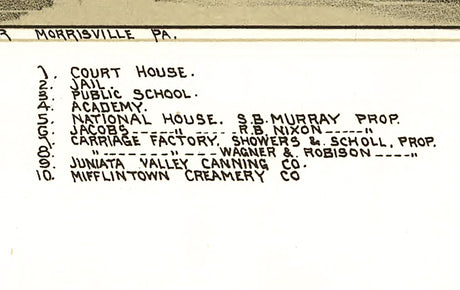 R MORRISVILLE PA.
1. COURT HOUSE.
2. JAIL.
3. PUBLIC SCHOOL.
4. ACADEMY.
5. NATIONAL HOUSE. S.B. MURRAY PROP.
6. JACOBS-----"-----R.B. NIXON-----"
7. CARRIAGE FACTORY. SHOWERS & SCHOLL, PROP.
8. "-------"----WAGNER & ROBISON----"
9. JUNIATA VALLEY CANNING CO.
10. MIFFLINTOWN CREAMERY CO